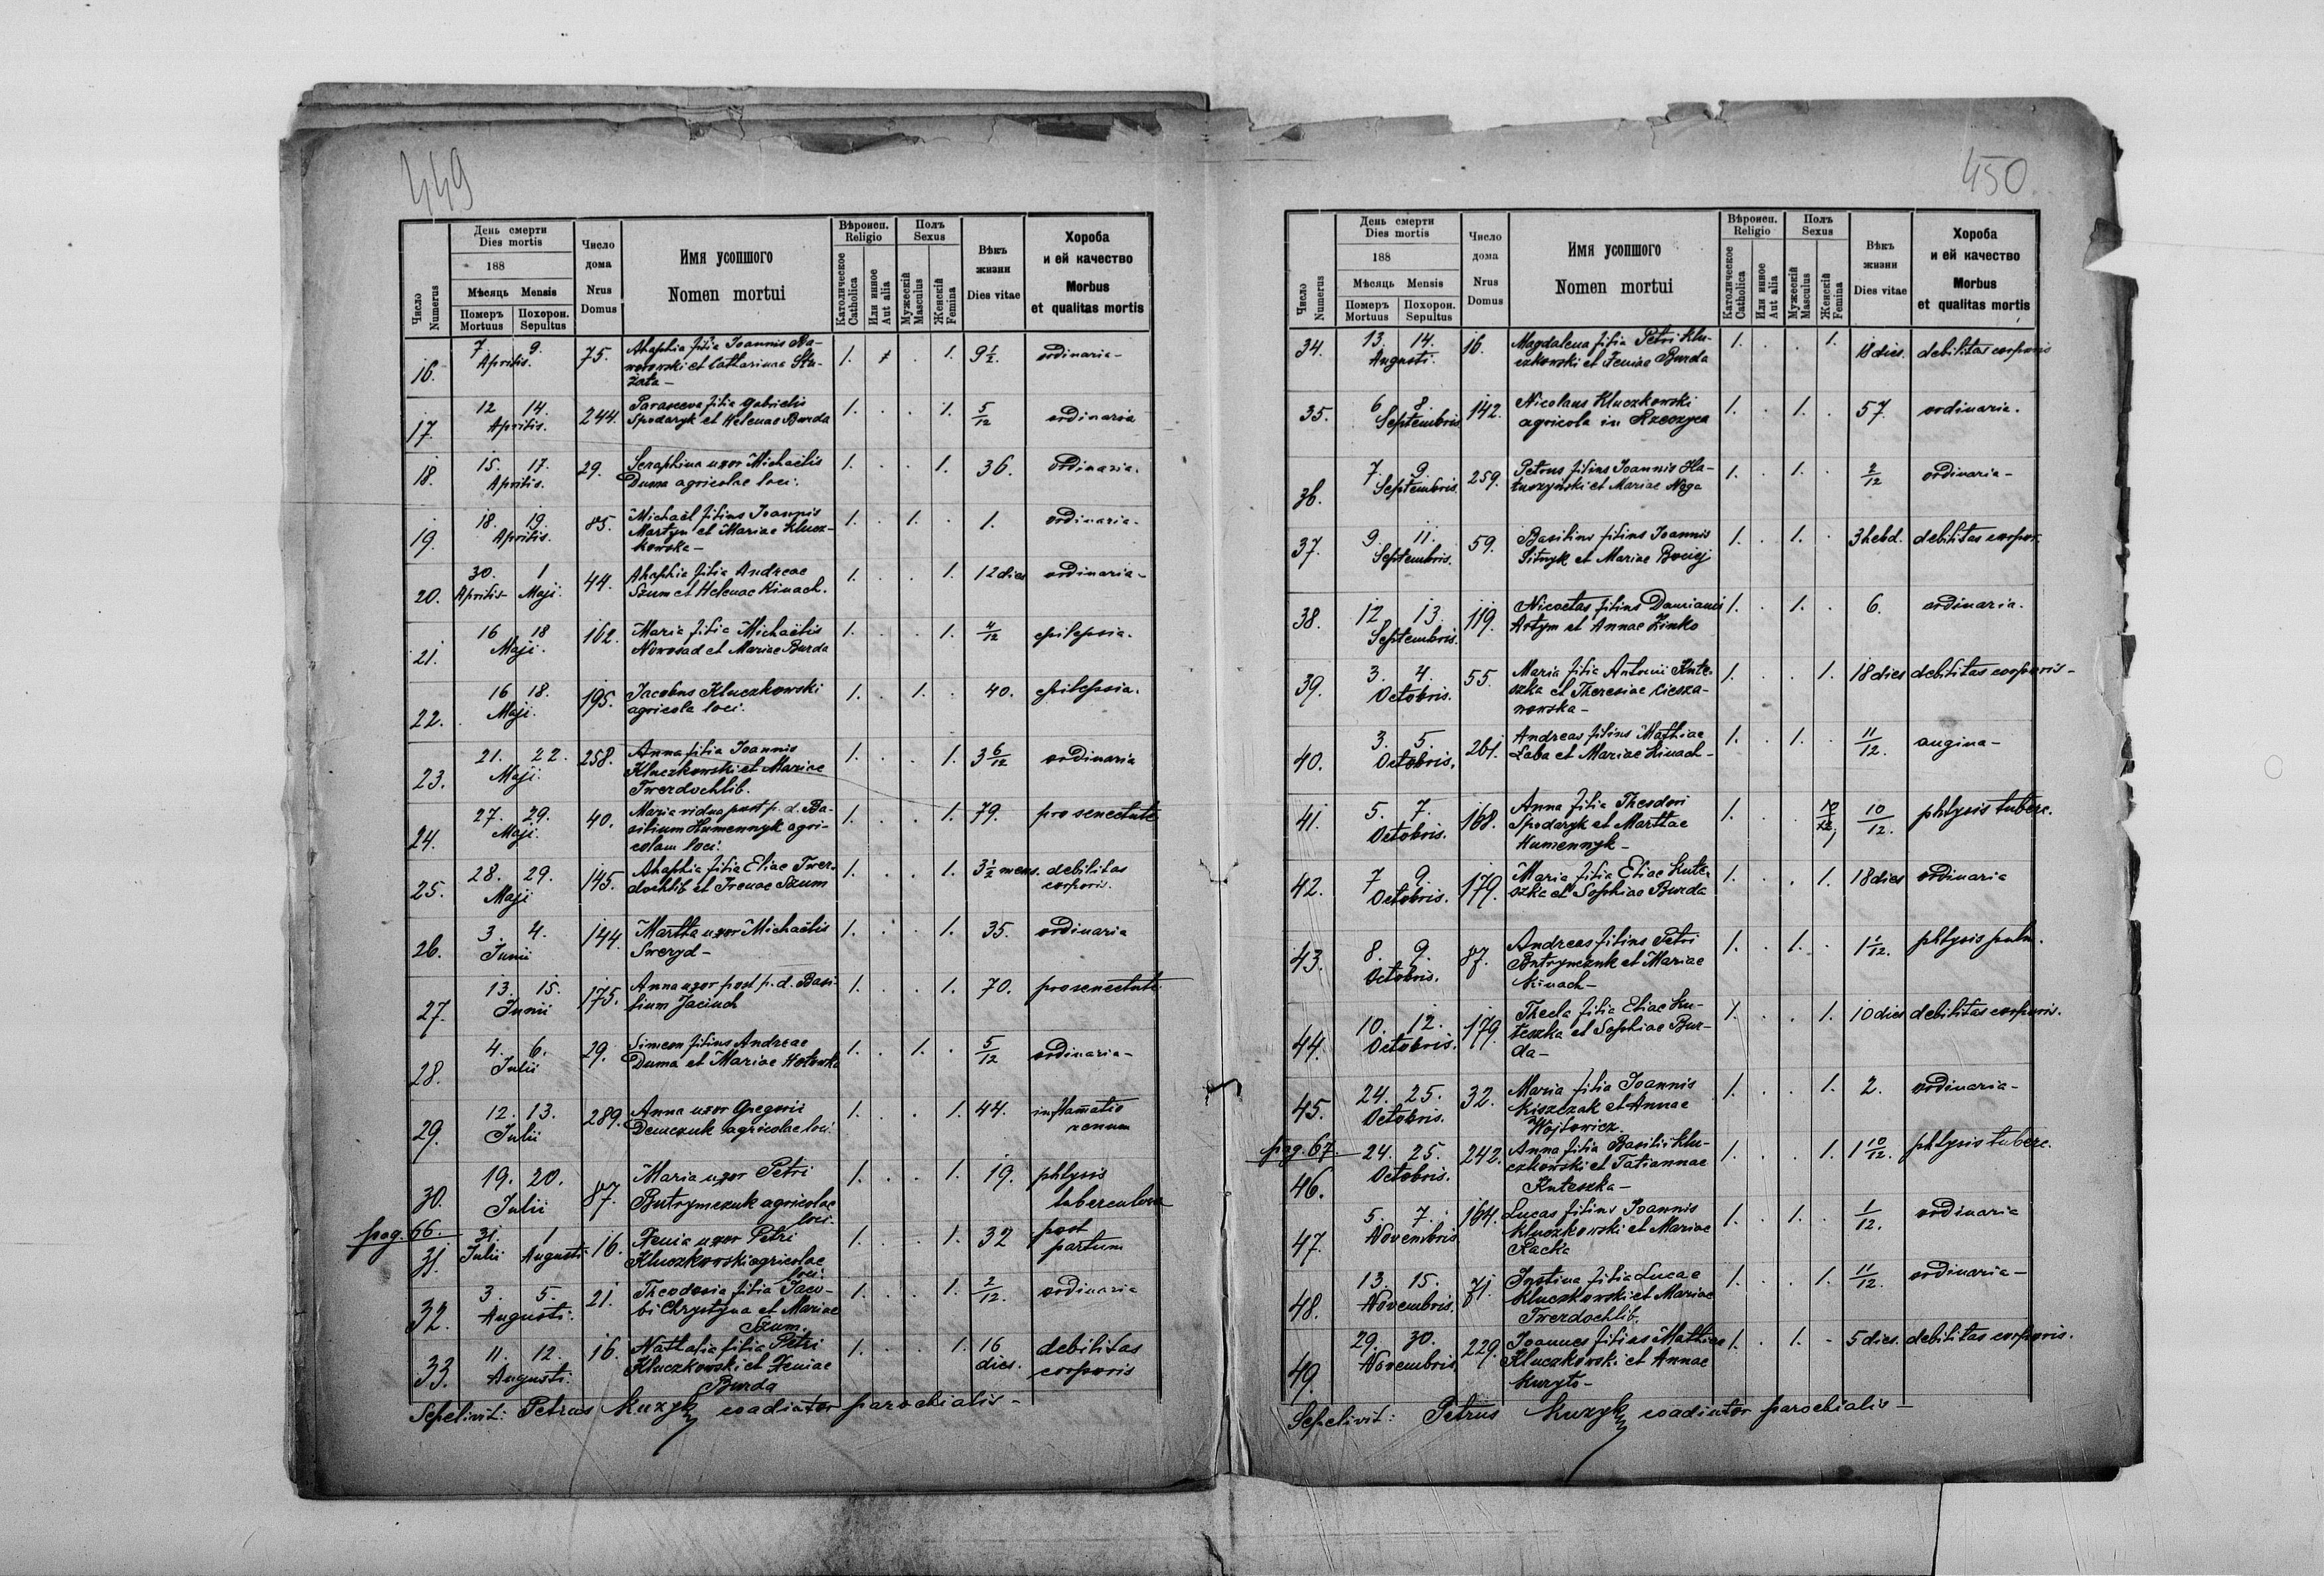 449
Число Numerus
День смерти
Dies mortis
188
Мѣсяць Mensis
Померъ Mortuus
Похорон. Sepultus
Число дома
Nrus Domus
Имя усопшого
Nomen mortui
Вѣроисп. Religio
Католическое Catholica
Или инное Aut alia
Полъ Sexus
Мужескій Masculus
Женскій Femina
Вѣкъ жизни
Dies vitae
Хороба и ей качество
Morbus et qualitas mortis
16. 7. 9. Aprilis. 75. Ahaphia filia Joannis
et Catharinae 1. 1. 9 1/2. ordinaria-
17. 12 14. Aprilis. 244. Parasceva filia Gabrielis
Spodaryk et Helenae Burda 1. . . 1. 5/12 ordinaria
18. 15. 17. Aprilis. 29. Seraphina uxor Michaëlis
Duma agricolae loci. 1. . . 1. 36. ordinaria.
19. 18. 19. Aprilis. 85. Michaël filius Joannis
Martyn et Mariae Klucz-
kowska- 1. . 1. . 1. ordinaria-
20. 30. Aprilis 1 Maji. 44. Ahaphia filia Andreae
Szum et Helenae Kinach. 1. . . 1. 12 dies ordinaria-
21. 16 18 Maji. 162. Maria filia Michaëlis
Nowosad et Mariae Burda 1. . . 1. 4/12 epilepsia.
22. 16 18. Maji. 195. Jacobus Kluczkowski
agricola loci. 1. . 1. . 40. epilepsia.
23. 21. 22. Maji. 258. Anna filia Joannis
Kluczkowski et Mariae
Twerdochlib. 1. . . 1. 3 6/12 ordinaria
24. 27. 29. Maji. 40. Maria vidua post p. d. Ba-
silium Humennyk agri-
colam loci. 1. . . 1. 79. pro senectute
25. 28. 29. Maji 145. Ahaphia filia Eliae Twer-
dochlib et Irenae Szum 1. . . 1. 3 1/2 mens. debilitas
corporis.
26. 3. 4. Junii 144. Martha uxor Michaëlis
Sweryd- 1. . . 1. 35. ordinaria
27. 13. 15. Junii 175. Anna uxor post p. d. Basi-
lium Jaciuch 1. . . 1. 70. pro senectute
28. 4. 6. Julii 29. Simeon filius Andreae
Duma et Mariae 1. . 1. . 5/12 ordinaria-
29. 12. 13. Julii 289. Anna uxor Gregorii
Demczuk agricolae loci. 1. . . 1. 44. inflammatio
renum
30. 19. 20. Julii 87. Maria uxor Petri
Butrymczuk agricolae
loci. 1. . . 1. 19. phtysis
tuberculosa
pag. 66.
31. 31. Julii 1 Augusti 16. Xenia uxor Petri
Kluczkowski agricolae
loci. 1. . . 1. 32 post
partum
32. 3. 5. Augusti. 21. Theodosia filia Jaco-
bi Chrystyna et Mariae
Szum. 1. . . 1. 2/12. ordinaria
33. 11. 12. Augusti. 16. Nathalia filia Petri
Kluczkowski et Xeniae
Burda 1. . . 1. 16
dies. debilitas
corporis
Sepelivit: Petrus Kuzyk coadiutor parochialis-
450
Число Numerus
День смерти
Dies mortis
188
Мѣсяць Mensis
Померъ Mortuus
Похорон. Sepultus
Число дома
Nrus Domus
Имя усопшого
Nomen mortui
Вѣроисп. Religio
Католическое Catholica
Или инное Aut alia
Полъ Sexus
Мужескій Masculus
Женскій Femina
Вѣкъ жизни
Dies vitae
Хороба и ей качество
Morbus et qualitas mortis
34. 13. 14. Augusti. 16. Magdalena filia Petri Klu-
czkowski et Xeniae Burda 1. . . 1. 18 dies. debilitas corporis
35. 6 8. Septembris 142. Nicolaus Kluczkowski
agricola in Rzeczyca 1. . 1. . 57. ordinaria.
36. 7. 9. Septembris. 259. Petrus filius Joannis Ha-
et Mariae Noga 1. . 1. . 2/12 ordinaria-
37. 9. 11. Septembris. 59. Basilius filius Joannis
Sitnyk et Mariae 1. . 1. . 3 hebd. debilitas corpor.
38. 12 13. Septembris. 119. Nicetas filius Damiani
Artym et Annae 1. . 1. . 6. ordinaria.
39. 3. 4. Octobris. 55. Maria filia Antonii Kute-
szka et Theresiae Ciesza-
nowska- 1. . . 1. 18 dies debilitas corporis-
40. 3. 5. Octobris. 261. Andreas filius Mathiae
Łaba et Mariae Kinach- 1. . 1. . 11/12. angina-
41. 5. 7. Octobris. 168. Anna filia Theodori
Spodaryk et Marthae
Humennyk- 1. . . 10/12. phtysis taberc.
42. 7 9. Octobris. 179. Maria filia Eliae Kute-
szka et Sophiae Burda 1. . . 1. 18 dies ordinaria
43. 8. 9. Octobris. 87. Andreas filius Petri
Butrymczuk et Mariae
Kinach- 1. . 1. . 1 1/12. phtysis pulm.
44. 10. 12. Octobris. 179. Thecla filia Eliae Ku-
teszka et Sophiae Bur-
da- 1. . . 1. 10 dies debilitas corporis.
45. 24. 25. Octobris. 32. Maria filia Joannis
Kiszczak et Annae
Wójtowicz. 1. . . 1. 2. ordinaria-
pag. 67.
46. 24. 25. Octobris. 242. Anna filia Basilii Klu-
czkowski et Tatiannae
Kuteszka- 1. . . 1. 1 10/12. phtysis taberc.
47. 5. 7. Novembris 164. Lucas filius Joannis
Kluczkowski et Mariae
Racka 1. . 1. . 1/12. ordinaria
48. 13. 15. Novembris. 71. Justina filia Lucae
Kluczkowski et Mariae
Twerdochlib. 1. . . 1. 11/12. ordinaria-
49. 29. 30. Novembris 229. Joannes filius Mathiae
Kluczkowski et Annae
Kuryło- 1. . 1. - 5 dies. debilitas corporis.
Sepelivit: Petrus Kuzyk coadiutor parochialis-